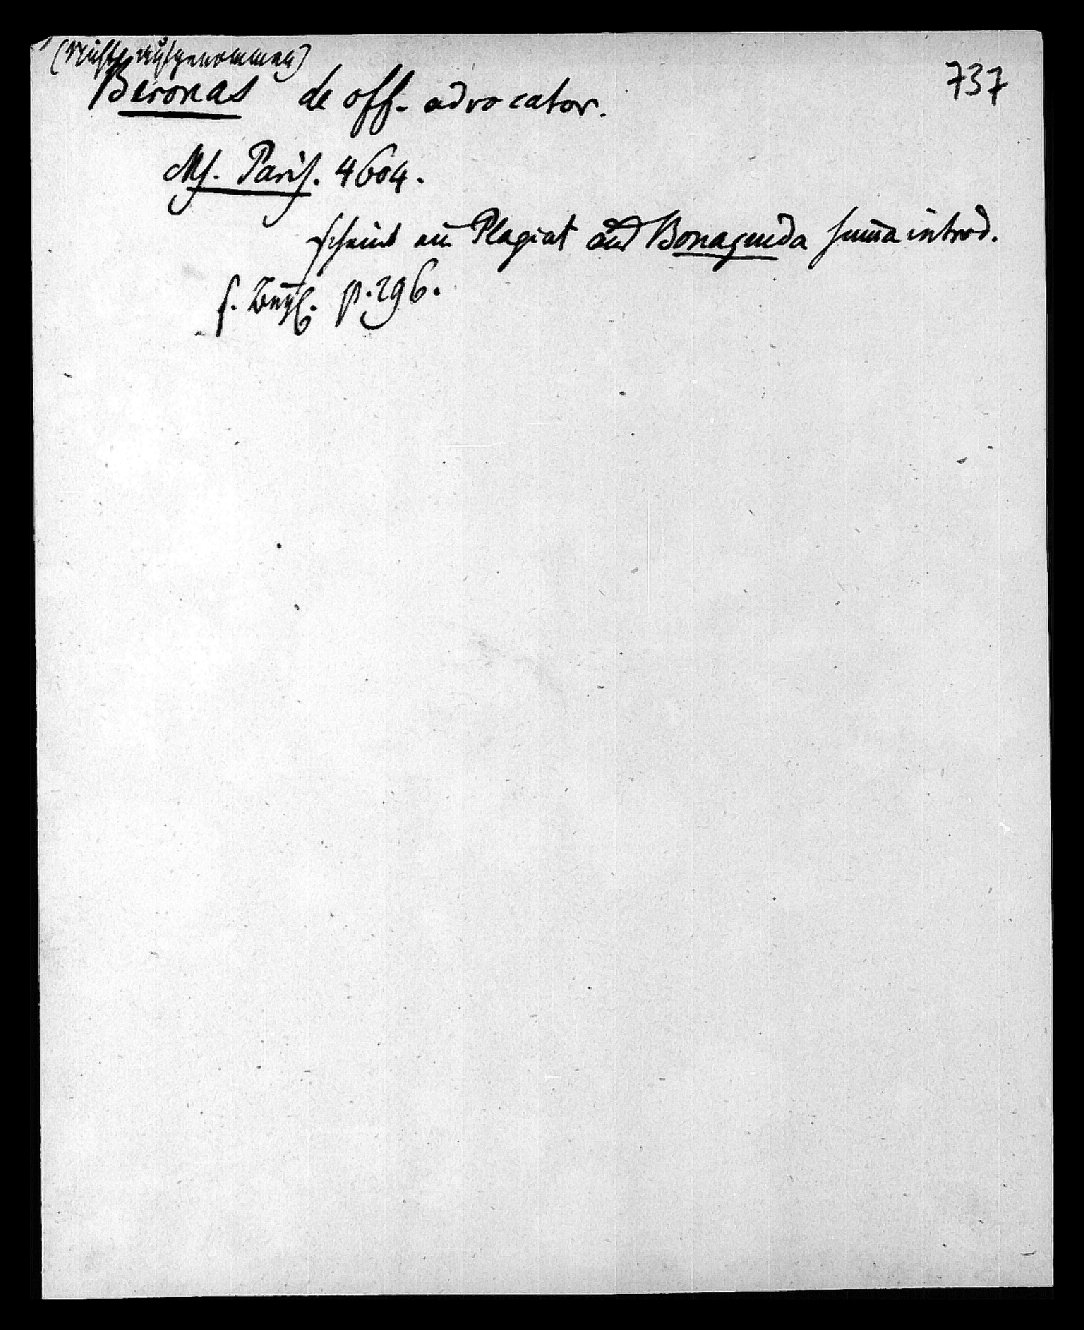 (Nicht aufgenommen)
Beronas de off. advocator. 737
Ms. Paris. 4604.
scheint ein Plagiat aus Bonaguida summa introd.
s. p. 296.